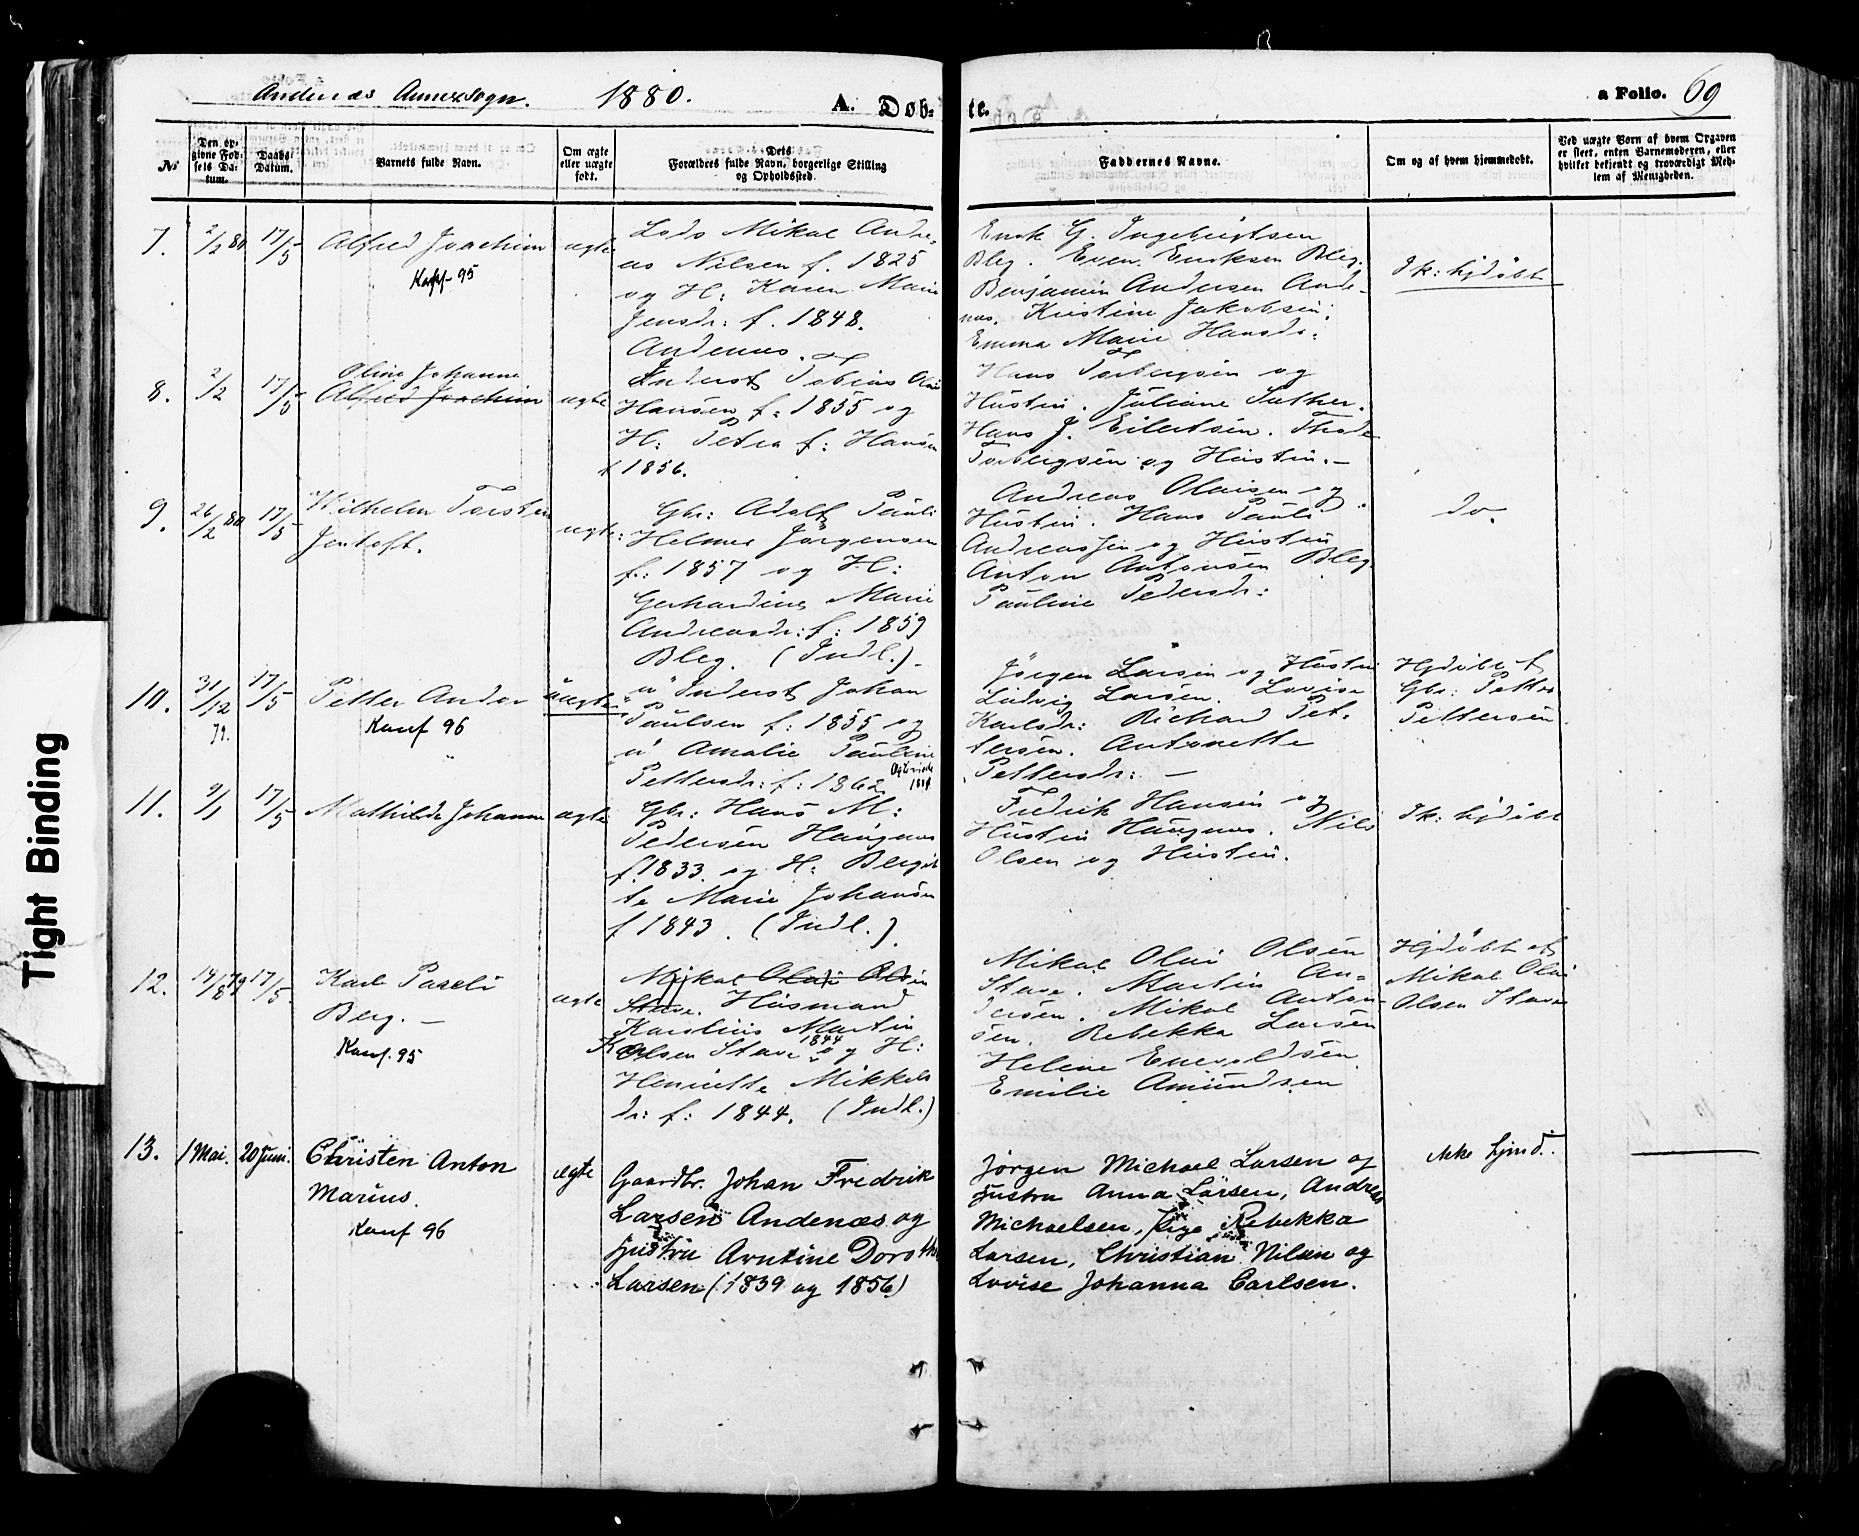 Andenæs Annexsogn. 1880. A. Døb-
te. a Folio. 69
No
Den op-
givne Fød-
sels Da-
tum.
Daabs
Datum.
Barnets fulde Navn.
Om ægte
eller uægte
født.
Dets
Forældres fulde Navn, borgerlige Stilling
og Opholdssted.
Faddernes Navne.
Om og af hvem hjemmedøbt.
Ved uægte Børn af hvem Opgaven
er skeet, enten Barnemoderen, eller
hvilket bekjendt og troværdigt Med-
lem af Menigheden.
7. 2/2 80 17/5 Alfred Joachim ægte
Konf 95
Lods Mikal Andre-
as Nilsen f. 1825
og H: Karen Marie
Jensdr: f. 1848.
Andenæs.
Enok G. Ingebrigtsen
Bleg. Even Eriksen Bleg.
Benjamin Andersen Ande-
næs. Kristine Jakobsen.
Emma Marie Hansdr.
Ik: hjdøbt
8. 2/2 17/5 Oline Johanne
Alfred Joachim ægte
Inderst Tobias Olai
Hansen f: 1855 og
H: Petra f: Hansen
f 1856.
Hans Torbergsen og
Hustru. Juliane Luther.
Hans J. Eilertsen. Thode
Torbergsen og Hustru.–
9. 26/2 80 17/5 Wilhelm Torstein
Jentoft. ægte:
Gbr: Adolf Pauli
Helmer Jørgensen
f.: 1857 og H:
Gerhardine Marie
Andreasdr: f: 1859
Bleg. (Indl.).
Andreas Olaisen og
Hustru. Hans Pauli
Andreassen og Hustru
Anton Antonsen Bleg
Pauline Pedersdr:
do.
10. 31/12 79. 17/5 Petter Andor uægte
Konf 96
u Inderst Johan
Paulsen f: 1855 og
u Amalie Pauline
Pettersdr: f: 1862
Jørgen Larsen og Hustru
Ludvig Larsen. Lovise
Karlsdr: Richard Pet-
tersen. Antonette
Pettersdr: –
Hjdøbt af
Gbr: Petter
Pettersen
11. 9/1 17/5 Mathilde Johanne ægte
Gbr: Hans M:
Pedersen Haugnæs
f. 1833. og H: Bergit-
te Marie Johansen
f 1843. (Indl.).
Fredrik Hansen og
Hustru Haugnæs. Nils
Olsen og Hustru.
Ik: hjdøbt
12. 14/8 79 17/5 Karl Paseli
Berg. – ægte
Konf. 95
Mikal Olai Olsen
Stave. Husmand
Karolius Martin
Olsen Stave 1844 og H:
Henriette Mikkels
dr: f: 1844. (Indl.)
Mikal Olai Olsen
Stave. Martin An-
dersen. Mikal Anton-
sen. Rebekka Larsen
Helene Enevoldsen
Emilie Amundsen
Hjdøbt af
Mikal Olai
Olsen Stave
13. 1 Mai. 20 Juni. Christen Anton
Marius. ægte
Konf 96
Gaardbr. Johan Fredrik
Larsen Andenæs og
Hustru Arntine Dorothea
Larsen (1839 og 1856)
Jørgen Michael Larsen og
Hustru Anna Larsen, Andreas
Michaelsen, Pige Rebekka
Larsen, Christian Nilsen og
Lovise Johanna Carlsen.
ikke hjmd.
Tight Binding